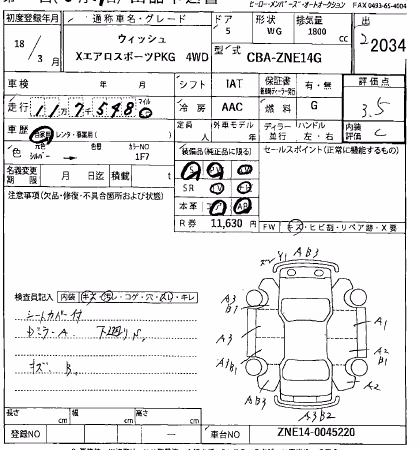 ヒーロー・メンバーズ・オートオークション FAX 0493-65-4004
初度登録年月 通称車名・グレード ドア 形状 排気量 出
18／3月 ウィッシュ 5 WG 1800 cc 2034
XエアロスポーツPKG 4WD 型式 CBA-ZNE14G
車検 年 月 シフト IAT 保証書 有・無 評価点
走行 117548 マイル 冷房 AAC 燃料 G 3.5
車歴 自家用 レンタ・事業用( ) 定員 人 外車モデル 年 ディーラー 並行 ハンドル 左・右 内装評価 C
色 元色 シルバー 色替 カラーNO 1F7 装備品(純正品に限る) セールスポイント(正常に機能するもの)
名義変更期限 月 日迄 積載 t SR
注意事項(欠品・修復・不具合箇所および状態) 本革
R券 11,630 円 FW キズ・ヒビ割・リペア跡・X要
検査員記入 内装 キズ・汚レ・コゲ・穴・スレ・キレ
シートカバー付
キズ
Y1 AB3
A3
B1
A1
A3
B1
A2
B1
AB3
A2
A3B2
長さ cm 幅 cm 高さ cm
登録NO 車台NO ZNE14-0045220